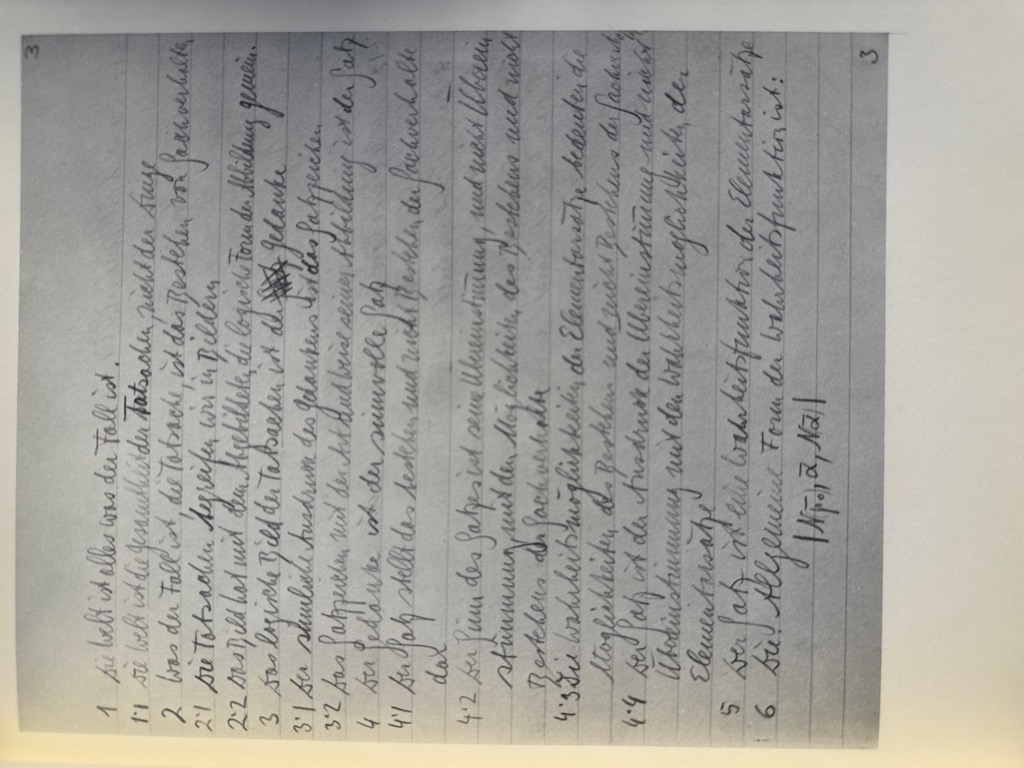 3
1 Die Welt ist alles was der Fall ist.
1·1 Die Welt ist die Gesamtheit der Tatsachen nicht der Dinge
2 Was der Fall ist, die Tatsache, ist das Bestehen von Sachverhalten
2·1 Die Tatsachen begreifen wir in Bildern
2·2 Das Bild hat mit dem Abgebildeten die logische Form der Abbildung gemein.
3 Das logische Bild der Tatsachen ist der Gedanke
3·1 Der sinnliche Ausdruck des Gedankens ist das Satzzeichen
3·2 Das Satzzeichen mit der Art und Weise seiner Abbildung ist der Satz
4 Der Gedanke ist der sinnvolle Satz
4·1 Der Satz stellt das bestehen und nicht Bestehen der Sachverhalte
dar
4·2 Der Sinn des Satzes ist seine Übereinstimmung, und nicht Überein-
stimmung mit den Möglichkeiten des Bestehens und nicht
Bestehens der Sachverhalte
4·3 Die Wahrheitsmöglichkeiten der Elementarsätze bedeuten die
Möglichkeiten des Bestehens und nicht Bestehens der Sachverhalte
4·4 Der Satz ist der Ausdruck der Übereinstimmung und nicht
Übereinstimmung mit den Wahrheitsmöglichkeiten der
Elementarsätze
5 Der Satz ist eine Wahrheitsfunktion der Elementarsätze
6 Die Allgemeine Form der Wahrheitsfunktion ist:
3